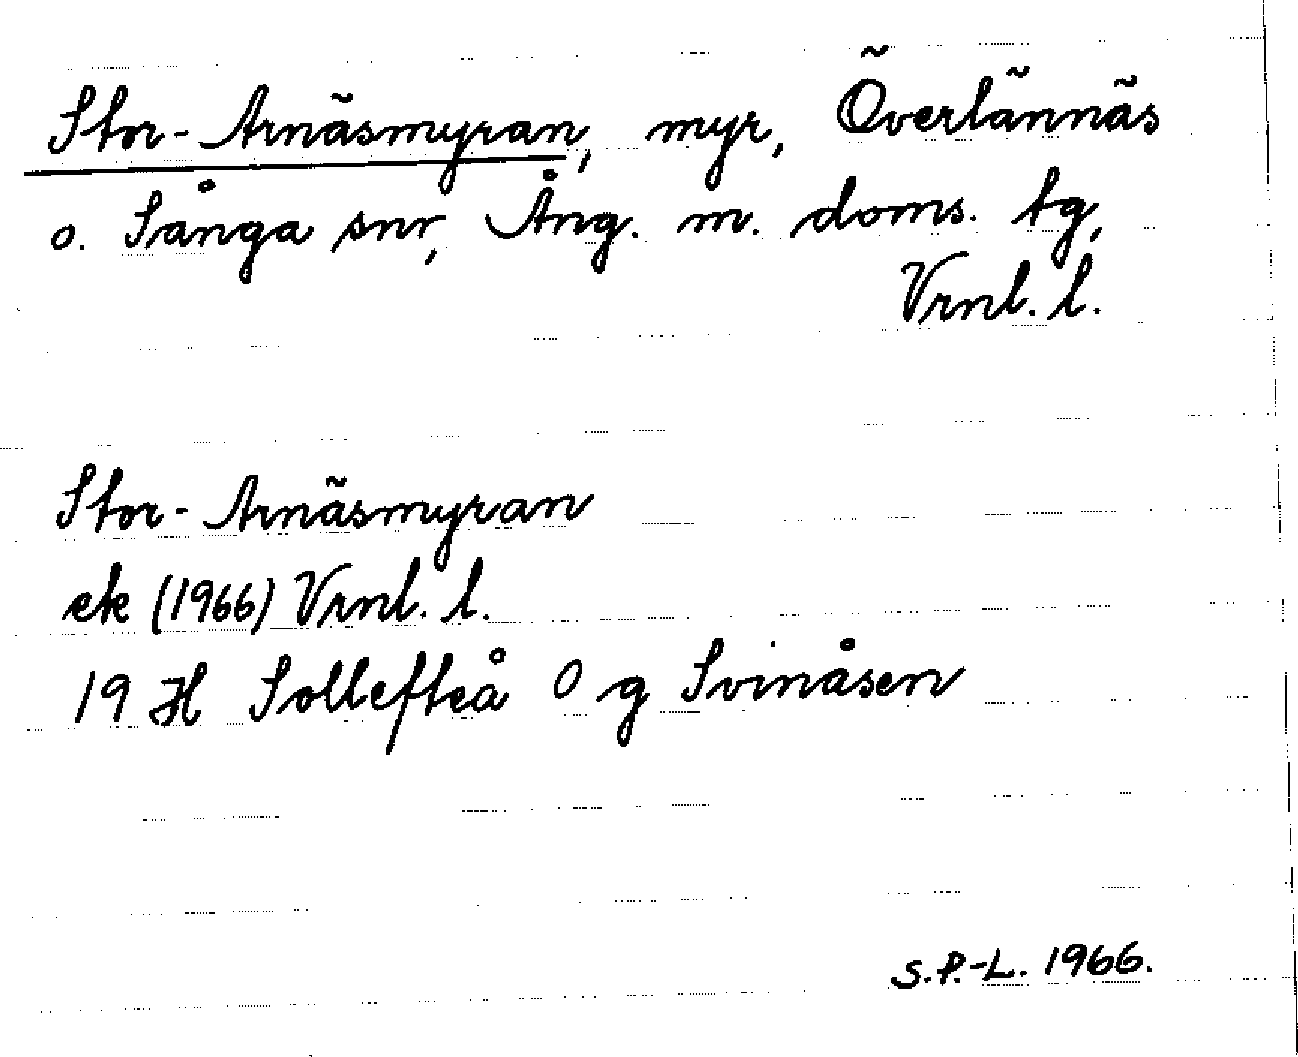 Stor-Arnäsmyran, myr, Överlännäs
o. Sånga snr, Ång. m. doms. tg,
Vrnl. l.
Stor-Arnäsmyran
ek (1966) Vrnl. l.
19 H Sollefteå O g Svinåsen
S.P.-L. 1966.